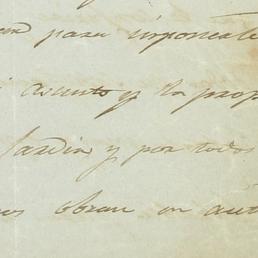 para imponerle
asunto y la prop
Jardin y por todos
obran en aut